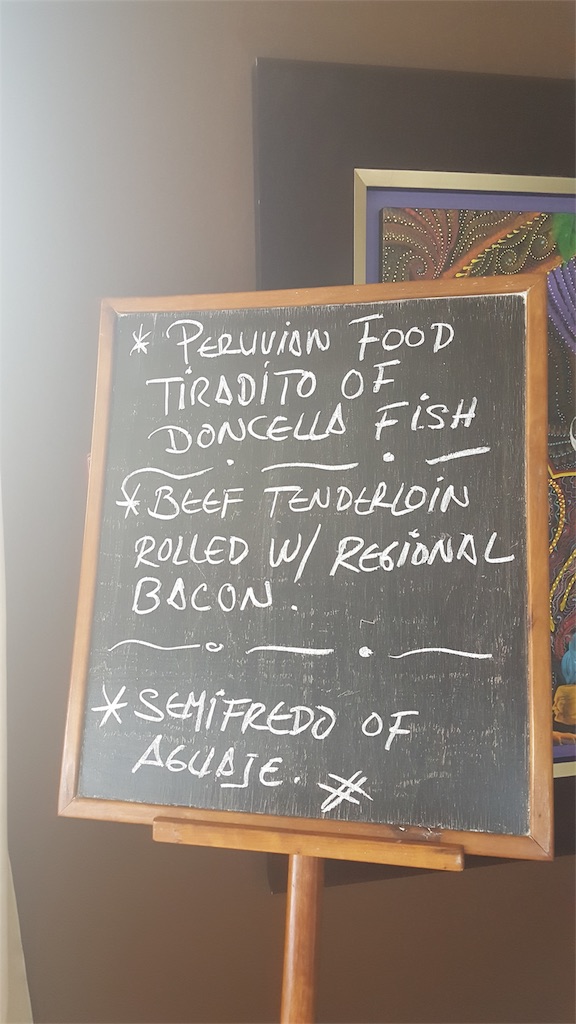 * PERUVIAN FOOD
TIRADITO OF
DONCELLA FISH
* BEEF TENDERLOIN
ROLLED W/ REGIONAL
BACON.
* SEMIFREDO OF
AGUAJE. #